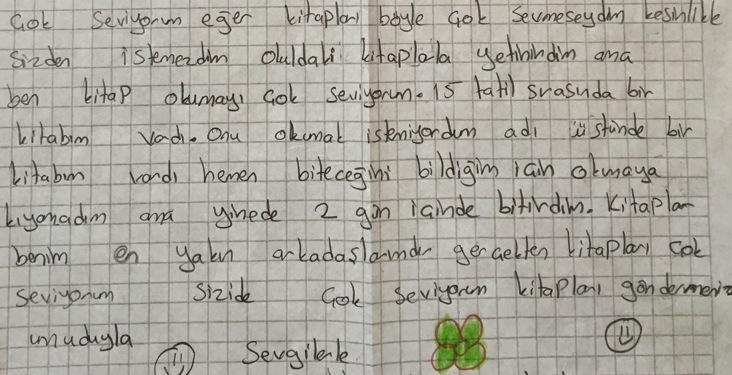 çok seviyorum eğer kitapları böyle çok sevmeseydim kesinlikle
sizden istemezdim okuldaki kitaplala yetinirdim ama
ben kitap okumayı çok seviyorum. 15 tatil sırasında bir
kitabım vadı. Onu okumak istemiyordum adı üstünde bir
kitabım vardı hemen biteceğini bildiğim için okumaya
kıyamadım ama yinede 2 gün içinde bitirdim. Kitaplar
benim en yakın arkadaşlarımdır gerçekten kitapları çok
seviyorum sizide çok seviyorum kitapları göndermeniz
umuduyla
Sevgilerle